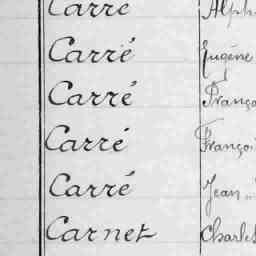 Carré Alph
Carré Eugène
Carré Franço
Carré Françoi
Carré Jean
Carnet Charles